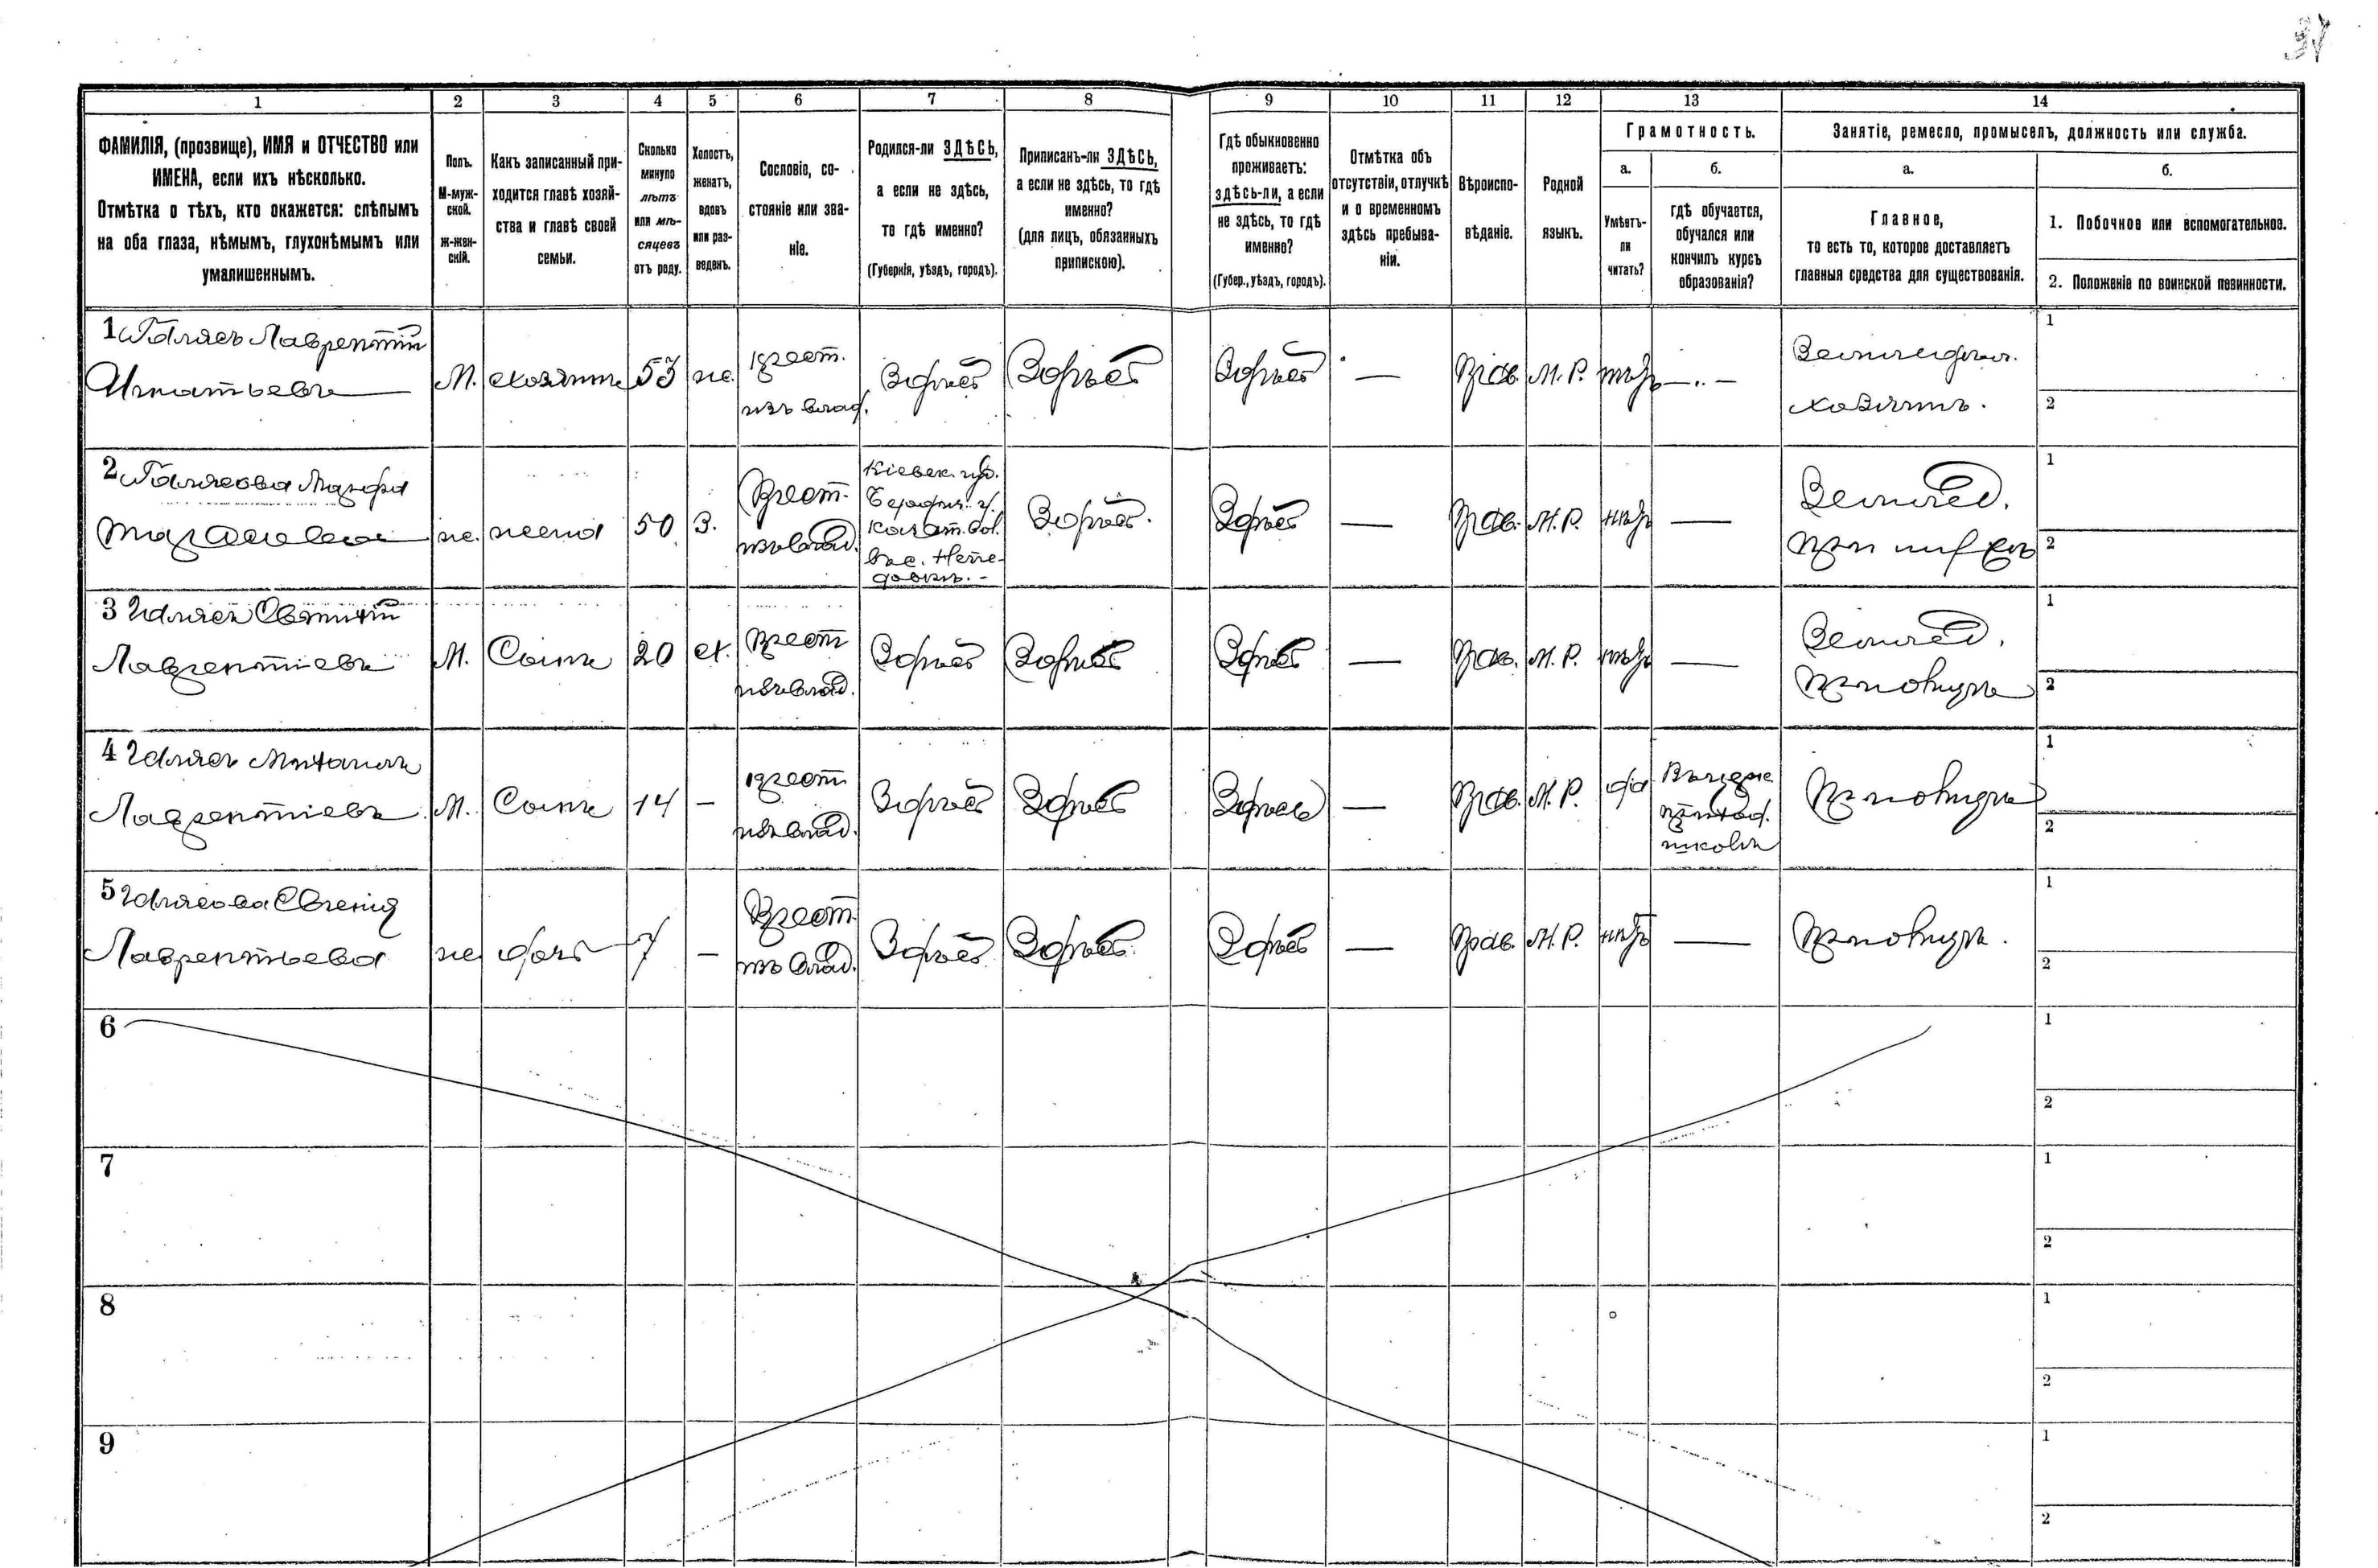 37
1
2
3
4
5
6
7
8
9
10
11
12
13
14
ФАМИЛІЯ, (прозвище), ИМЯ и ОТЧЕСТВО или
ИМЕНА, если ихъ нѣсколько.
Отмѣтка о тѣхъ, кто окажется: слѣпымъ
на оба глаза, нѣмымъ, глухонѣмымъ или
умалишеннымъ.
Полъ.
М-муж-
ской.
Ж-жен-
скій.
Какъ записанный при-
ходится главѣ хозяй-
ства и главѣ своей
семьи.
Сколько
минуло
лѣтъ
или мѣ-
сяцевъ
отъ роду.
Холостъ,
женатъ,
вдовъ
или раз-
веденъ.
Сословіе, со-
стояніе или зва-
ніе.
Родился-ли ЗДѢСЬ,
а если не здѣсь,
то гдѣ именно?
(Губернія, уѣздъ, городъ).
Приписанъ-ли ЗДѢСЬ,
а если не здѣсь, то гдѣ
именно?
(для лицъ, обязанныхъ
припискою).
Гдѣ обыкновенно
проживаетъ:
здѣсь-ли, а если
не здѣсь, то гдѣ
именно?
(Губер., уѣздъ, городъ).
Отмѣтка объ
отсутствіи, отлучкѣ
и о временномъ
здѣсь пребыва-
ніи.
Вѣроиспо-
вѣданіе.
Родной
языкъ.
Грамотность.
а.
Умѣетъ-
ли
читать?
б.
гдѣ обучается,
обучался или
кончилъ курсъ
образованія?
Занятіе, ремесло, промыселъ, должность или служба.
а.
Главное,
то есть то, которое доставляетъ
главныя средства для существованія.
б.
1. Побочное или вспомогательное.
2. Положеніе по воинской повинности.
1 Лаврентій
Игнатьевъ
М.
хозяинъ
53
же.
крест.
изъ влад.
Здѣсь
Здѣсь
Здѣсь
—
Прав.
М. Р.
нѣтъ
—
Земледѣл.
хозяинъ.
1
2
2
же.
жена
50
З.
Крест.
изъ влад.
Кіевск. губ.
Здѣсь.
Здѣсь
—
Прав.
М. Р.
нѣтъ
—
Землед.
при мужѣ
1
2
3
Лаврентіевъ
М.
Сынъ
20
х.
Крест
изъ влад.
Здѣсь
Здѣсь
Здѣсь
—
Прав.
М. Р.
нѣтъ
—
Землед.
при отцѣ
1
2
4
Лаврентіевъ
М.
Сынъ
14
–
крест
изъ влад.
Здѣсь
Здѣсь
Здѣсь
—
Прав.
М. Р.
да
школѣ
при отцѣ
1
2
5 Евгенія
Лаврентьева
же
дочь
7
–
Крест.
изъ влад.
Здѣсь
Здѣсь
Здѣсь
—
Прав.
М. Р.
нѣтъ
—
при отцѣ.
1
2
6
1
2
7
1
2
8
1
2
9
1
2